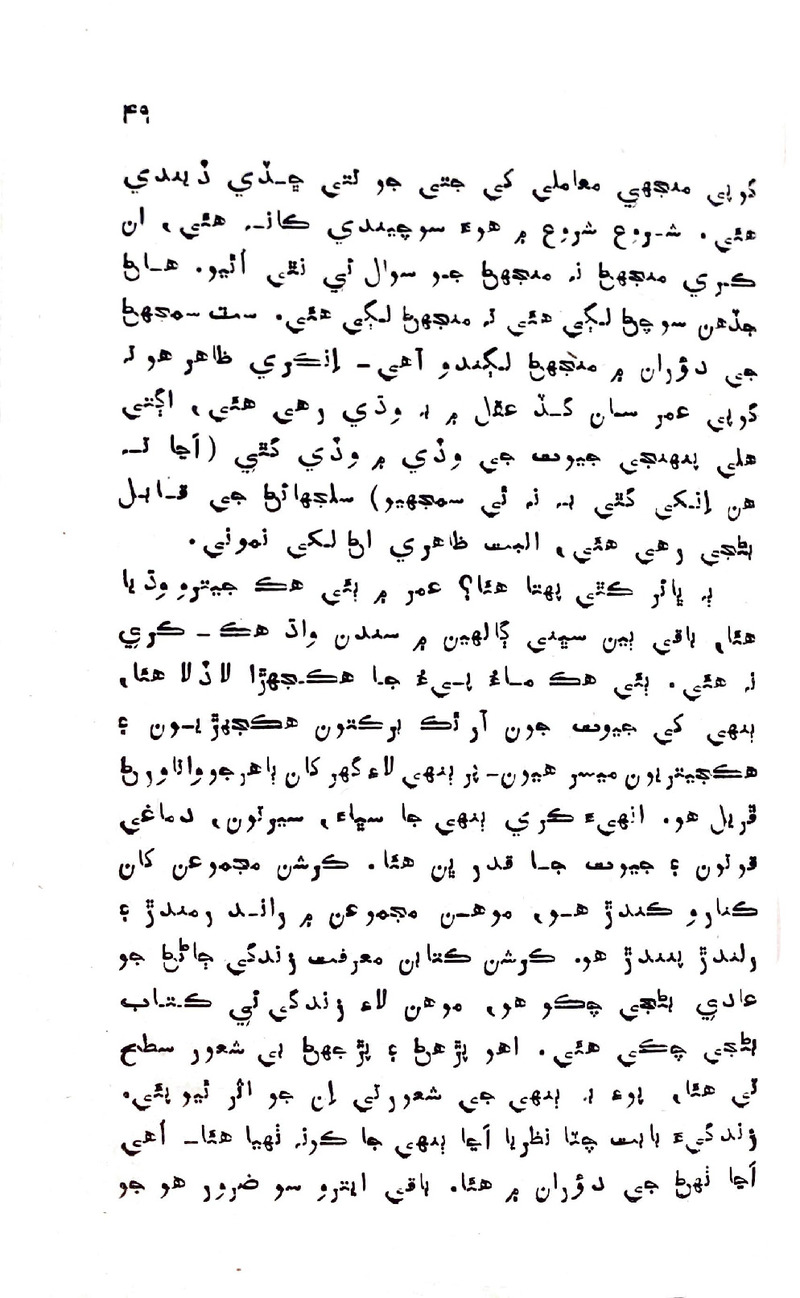 ۴۹
گوپي منجهي معاملي کي جتي جو تتي ڇڏي ڏيندي
هئي. شروع شروع ۾ هوءَ سوچيندي کانہ هئي، ان
ڪري منجهڻ نہ منجهڻ جو سوال ئي نٿي اُٿيو. هاڻ
جڏهن سوچڻ لڳي هئي تہ منجهڻ لڳي هئي. ست سمجهڻ
جي دؤران ۾ منجهڻ لڳندو آهي- اِنڪري ظاهر هو تہ
گوپي عمر سان گڏ عقل ۾ بہ وڌي رهي هئي، اڳتي
هلي پنهنجي جيوت جي وڏي ۾ وڏي ڳتي (اڃا تہ
هن اِنکي ڳتي بہ نہ ئي سمجهيو) سلجهائڻ جي قابل
بڻجي رهي هئي، البت ظاهري اڻ لکي نموني.
ٻہ ڀائر ڪٿي پهتا هئا؟ عمر ۾ ٻئي هڪ جيترو وڌيا
هئا، باقي ٻين سڀني ڳالهين ۾ سندن واڌ هڪ- ڪري
نہ هئي. ٻئي هڪ ماءُ پيءُ جا هڪجهڙا لاڏلا هئا،
ٻنهي کي جيوت جون آرٿڪ برڪتون هڪجهڙيون ۽
هڪجيتريون ميسر هيون- پر ٻنهي لاءِ گهر کان ٻاهر جو واتاورڻ
ڦريل هو. انهيءَ ڪري ٻنهي جا سڀاءَ، سيرتون، دماغي
قوتون ۽ جيوت جا قدر ٻن هئا. ڪرشن مجموعن کان
ڪنارو ڪندڙ هو، موهن مجموعن ۾ رانـد رمندڙ ۽
رلندڙ پسندڙ هو. ڪرشن ڪتابن معرفت زندگي ڄاڻڻ جو
عادي بڻجي چڪو هو، موهن لاءِ زندگي ئي ڪتاب
بڻجي چڪي هئي. اهو پڙهڻ ۽ پڙجهڻ بي شعور سطح
تي هئا، پوءِ بہ ٻنهي جي شعور تي اِن جو اثر ٿيو پئي.
زندگيءَ بابت چٽا نظريا اڃا ٻنهي جا ڪونہ ٺهيا هئا- اُهي
اُڃا ٺهڻ جي دؤران ۾ هئا. باقي ايترو سو ضرور هو جو